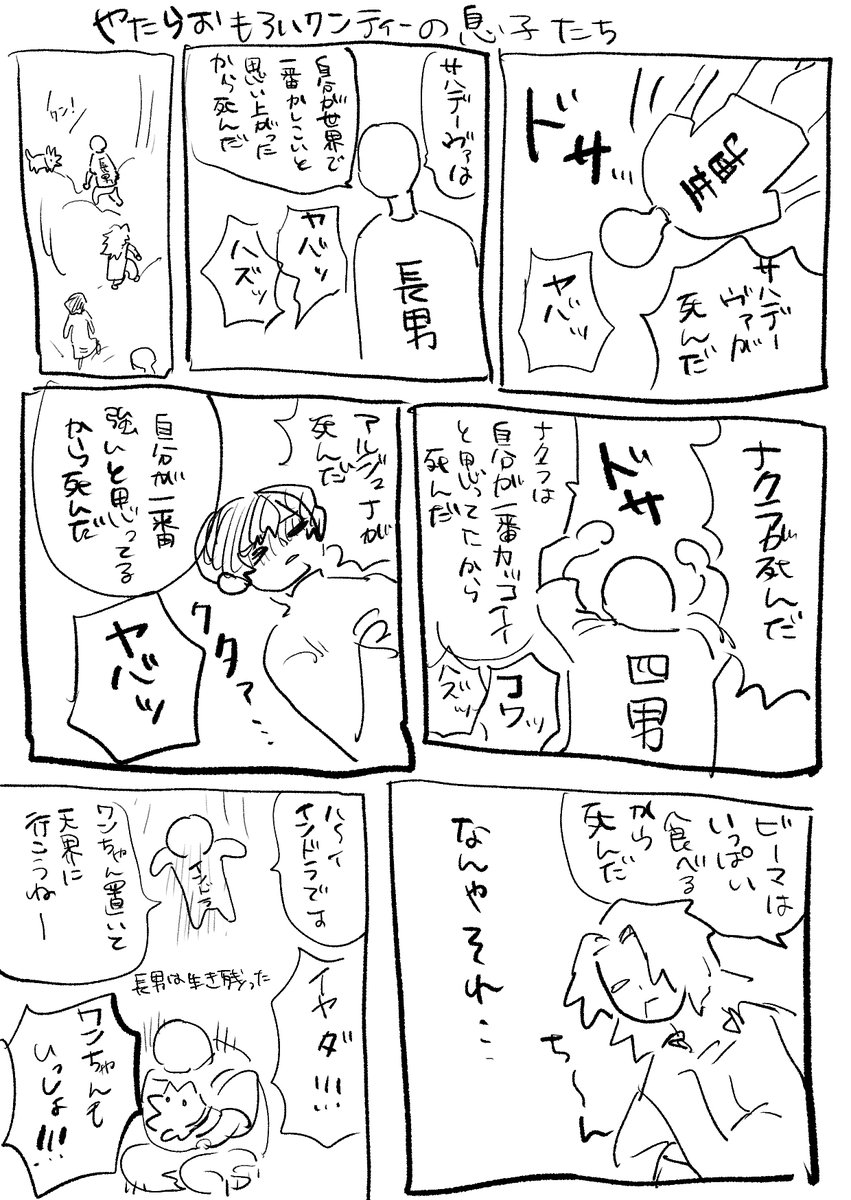 やたらおもろいクンティーの息子たち
ドサ…
サハデー
ヴァが
死んだ
ヤバッ
サハデーヴァは
自分が世界で
一番かしこいと
思い上がった
から死んだ
長男
ヤバッ
ハズッ
ワン!
長男
ナクラが死んだ
ドサ
ナクラは
自分が一番カッコイイ
と思ってたから
死んだ
四男
コワッ
ハズッ
アルジュナが
死んだ
自分が一番
強いと思ってる
から死んだ
クタァ…
ヤバッ
ビーマは
いっぱい
食べる
から
死んだ
なんやそれ…
ち〜ん
ハーイ
インドラです
インドラ
ワンちゃん置いて
天界に
行こうねー
長男は生き残った
イヤダ!!!
ワンちゃんも
いっしょ!!!